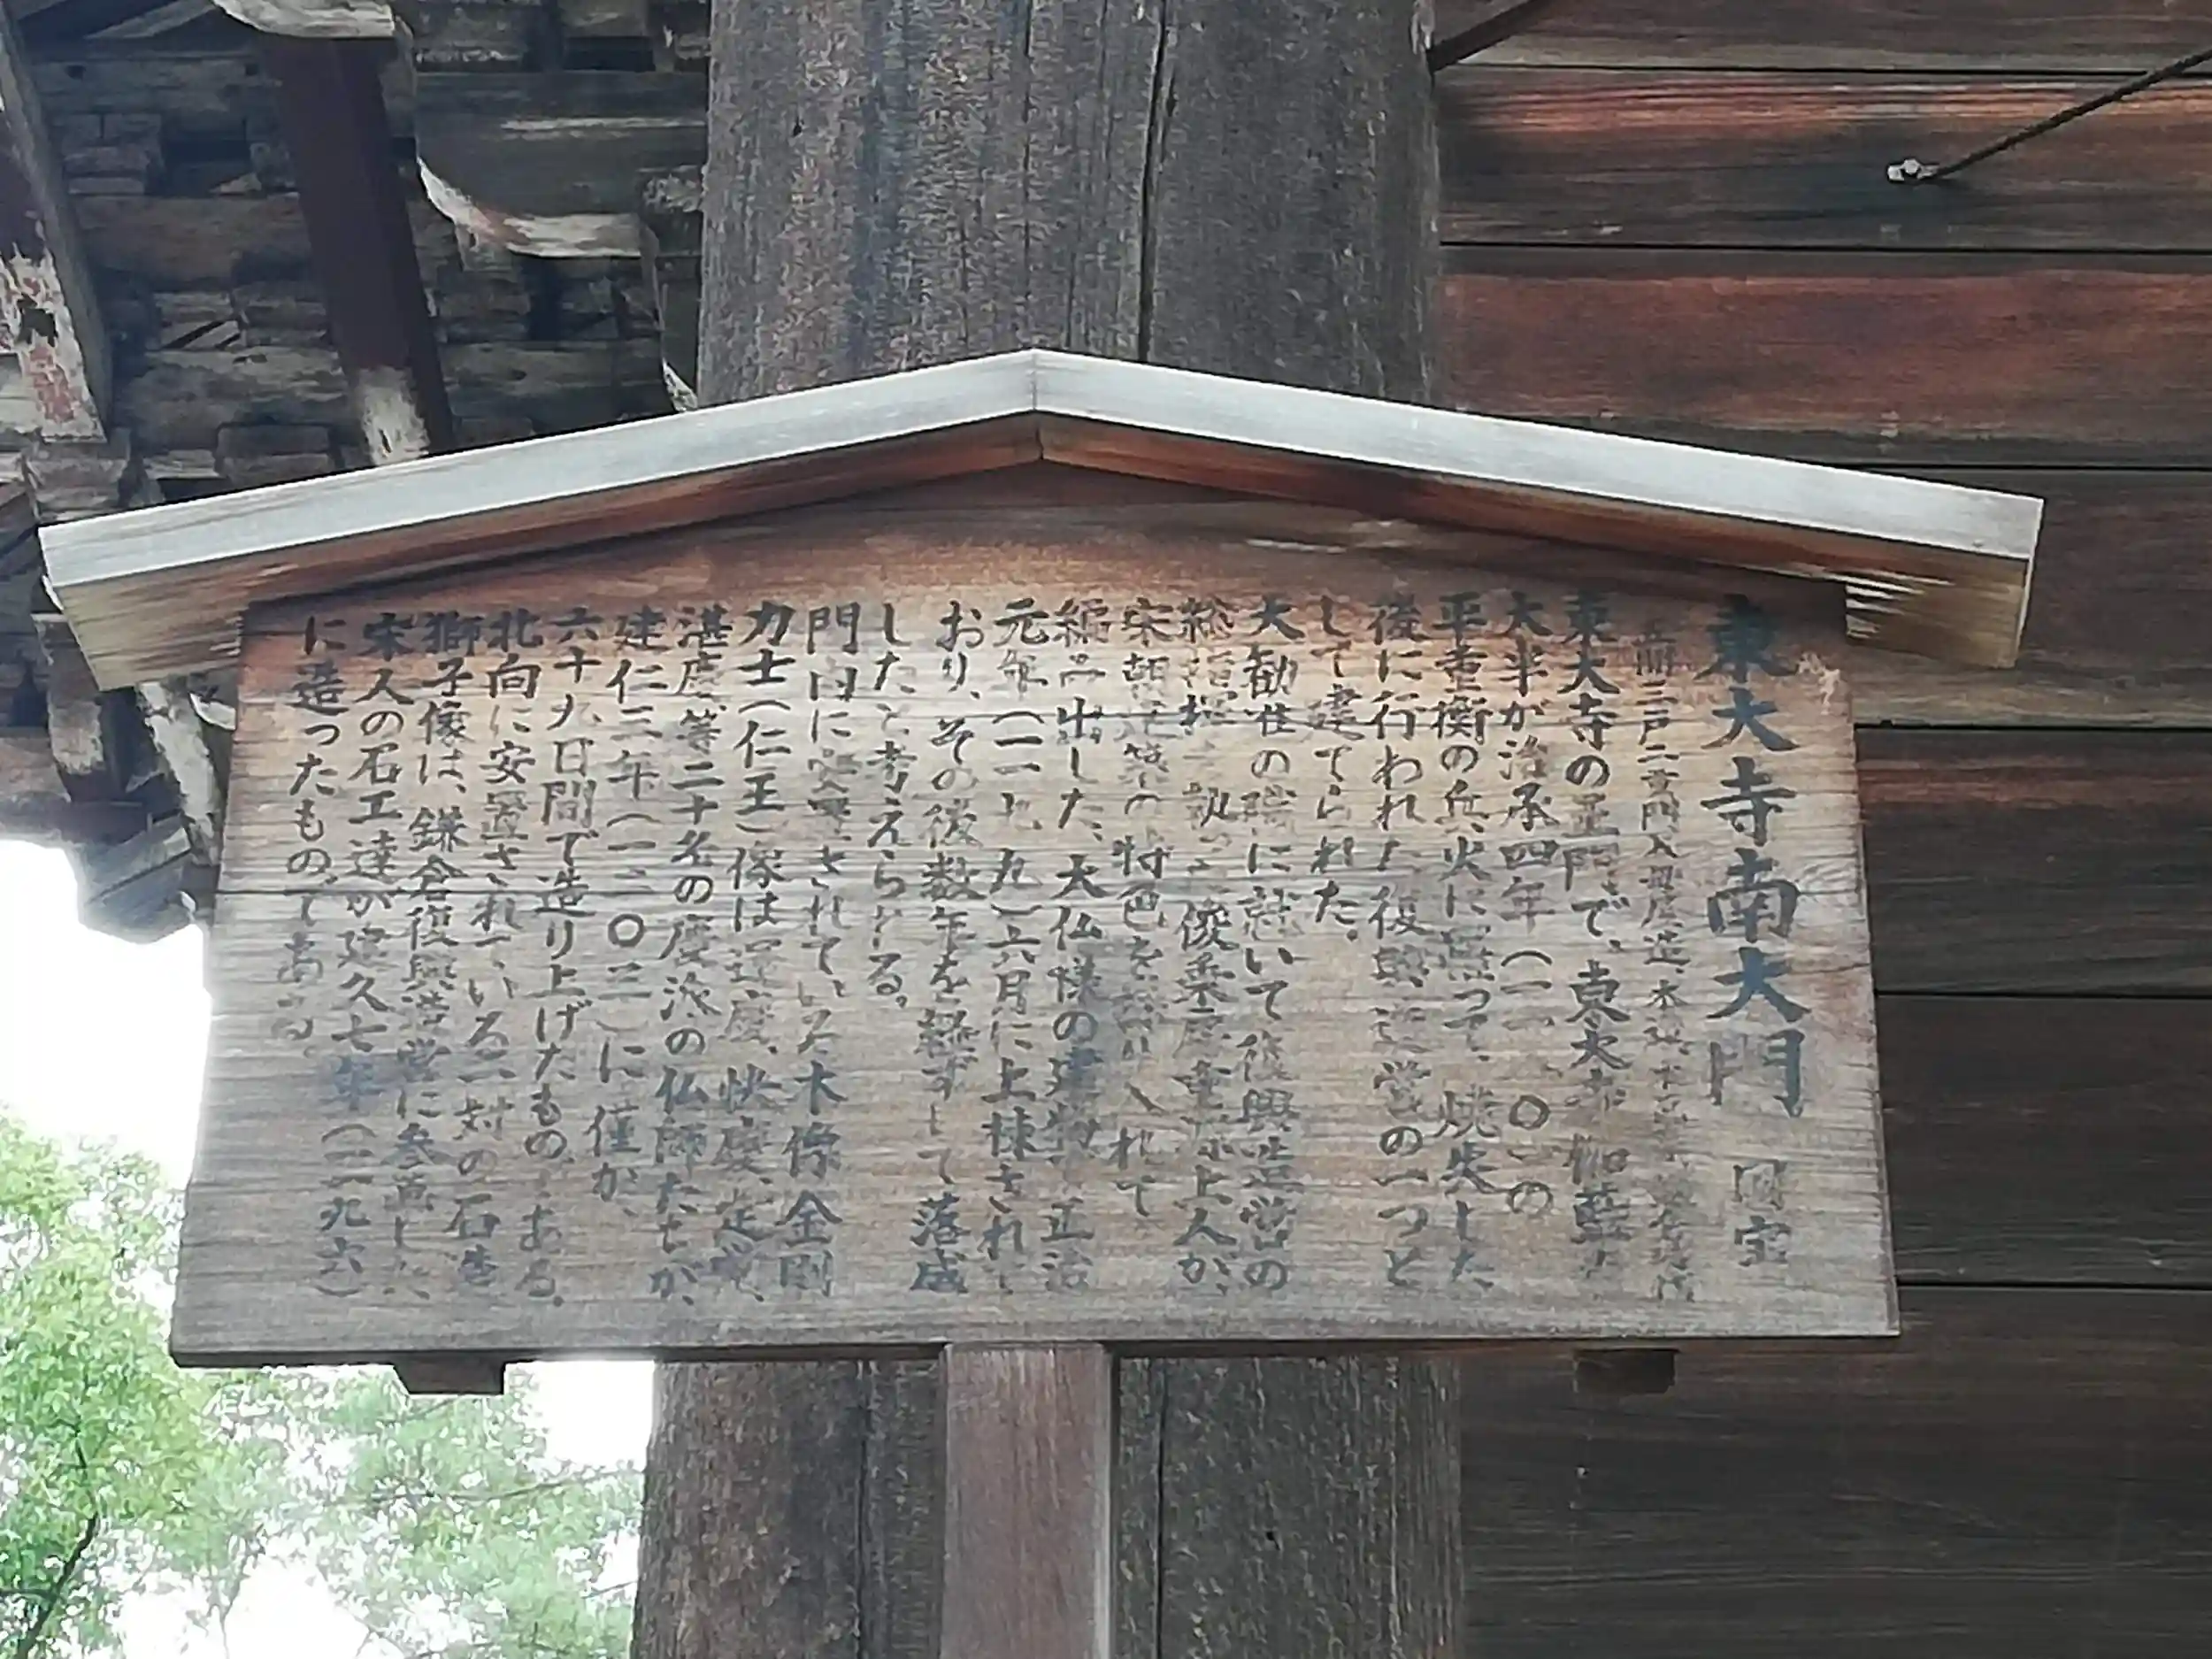 東大寺南大門 国宝
五間三戸二重門、入母屋造、本瓦
東大寺の正門で、東大寺伽藍の
大半が治承四年(一一八〇)の
平重衡の兵火に罹って、焼失した
後に行われた復興造営の一つと
して建てられた。
大勧進の職に就いて復興造営の
総指揮を執った俊乗房重源上人が、
宋朝建築の特色を採り入れて
編み出した、大仏様の建物で正治
元年(一一九九)六月に上棟されて
おり、その後数年を経ずして落成
したと考えられる。
門内に安置されている木像金剛
力士(仁王)像は運慶、快慶、定覚、
湛慶等二十名の慶派の仏師たちが、
建仁三年(一二〇三)に僅か、
六十九日間で造り上げたものである。
北向に安置されている一対の石造
獅子像は、鎌倉復興造営に参画した、
宋人の石工達が建久七年(一一九六)
に造ったものである。